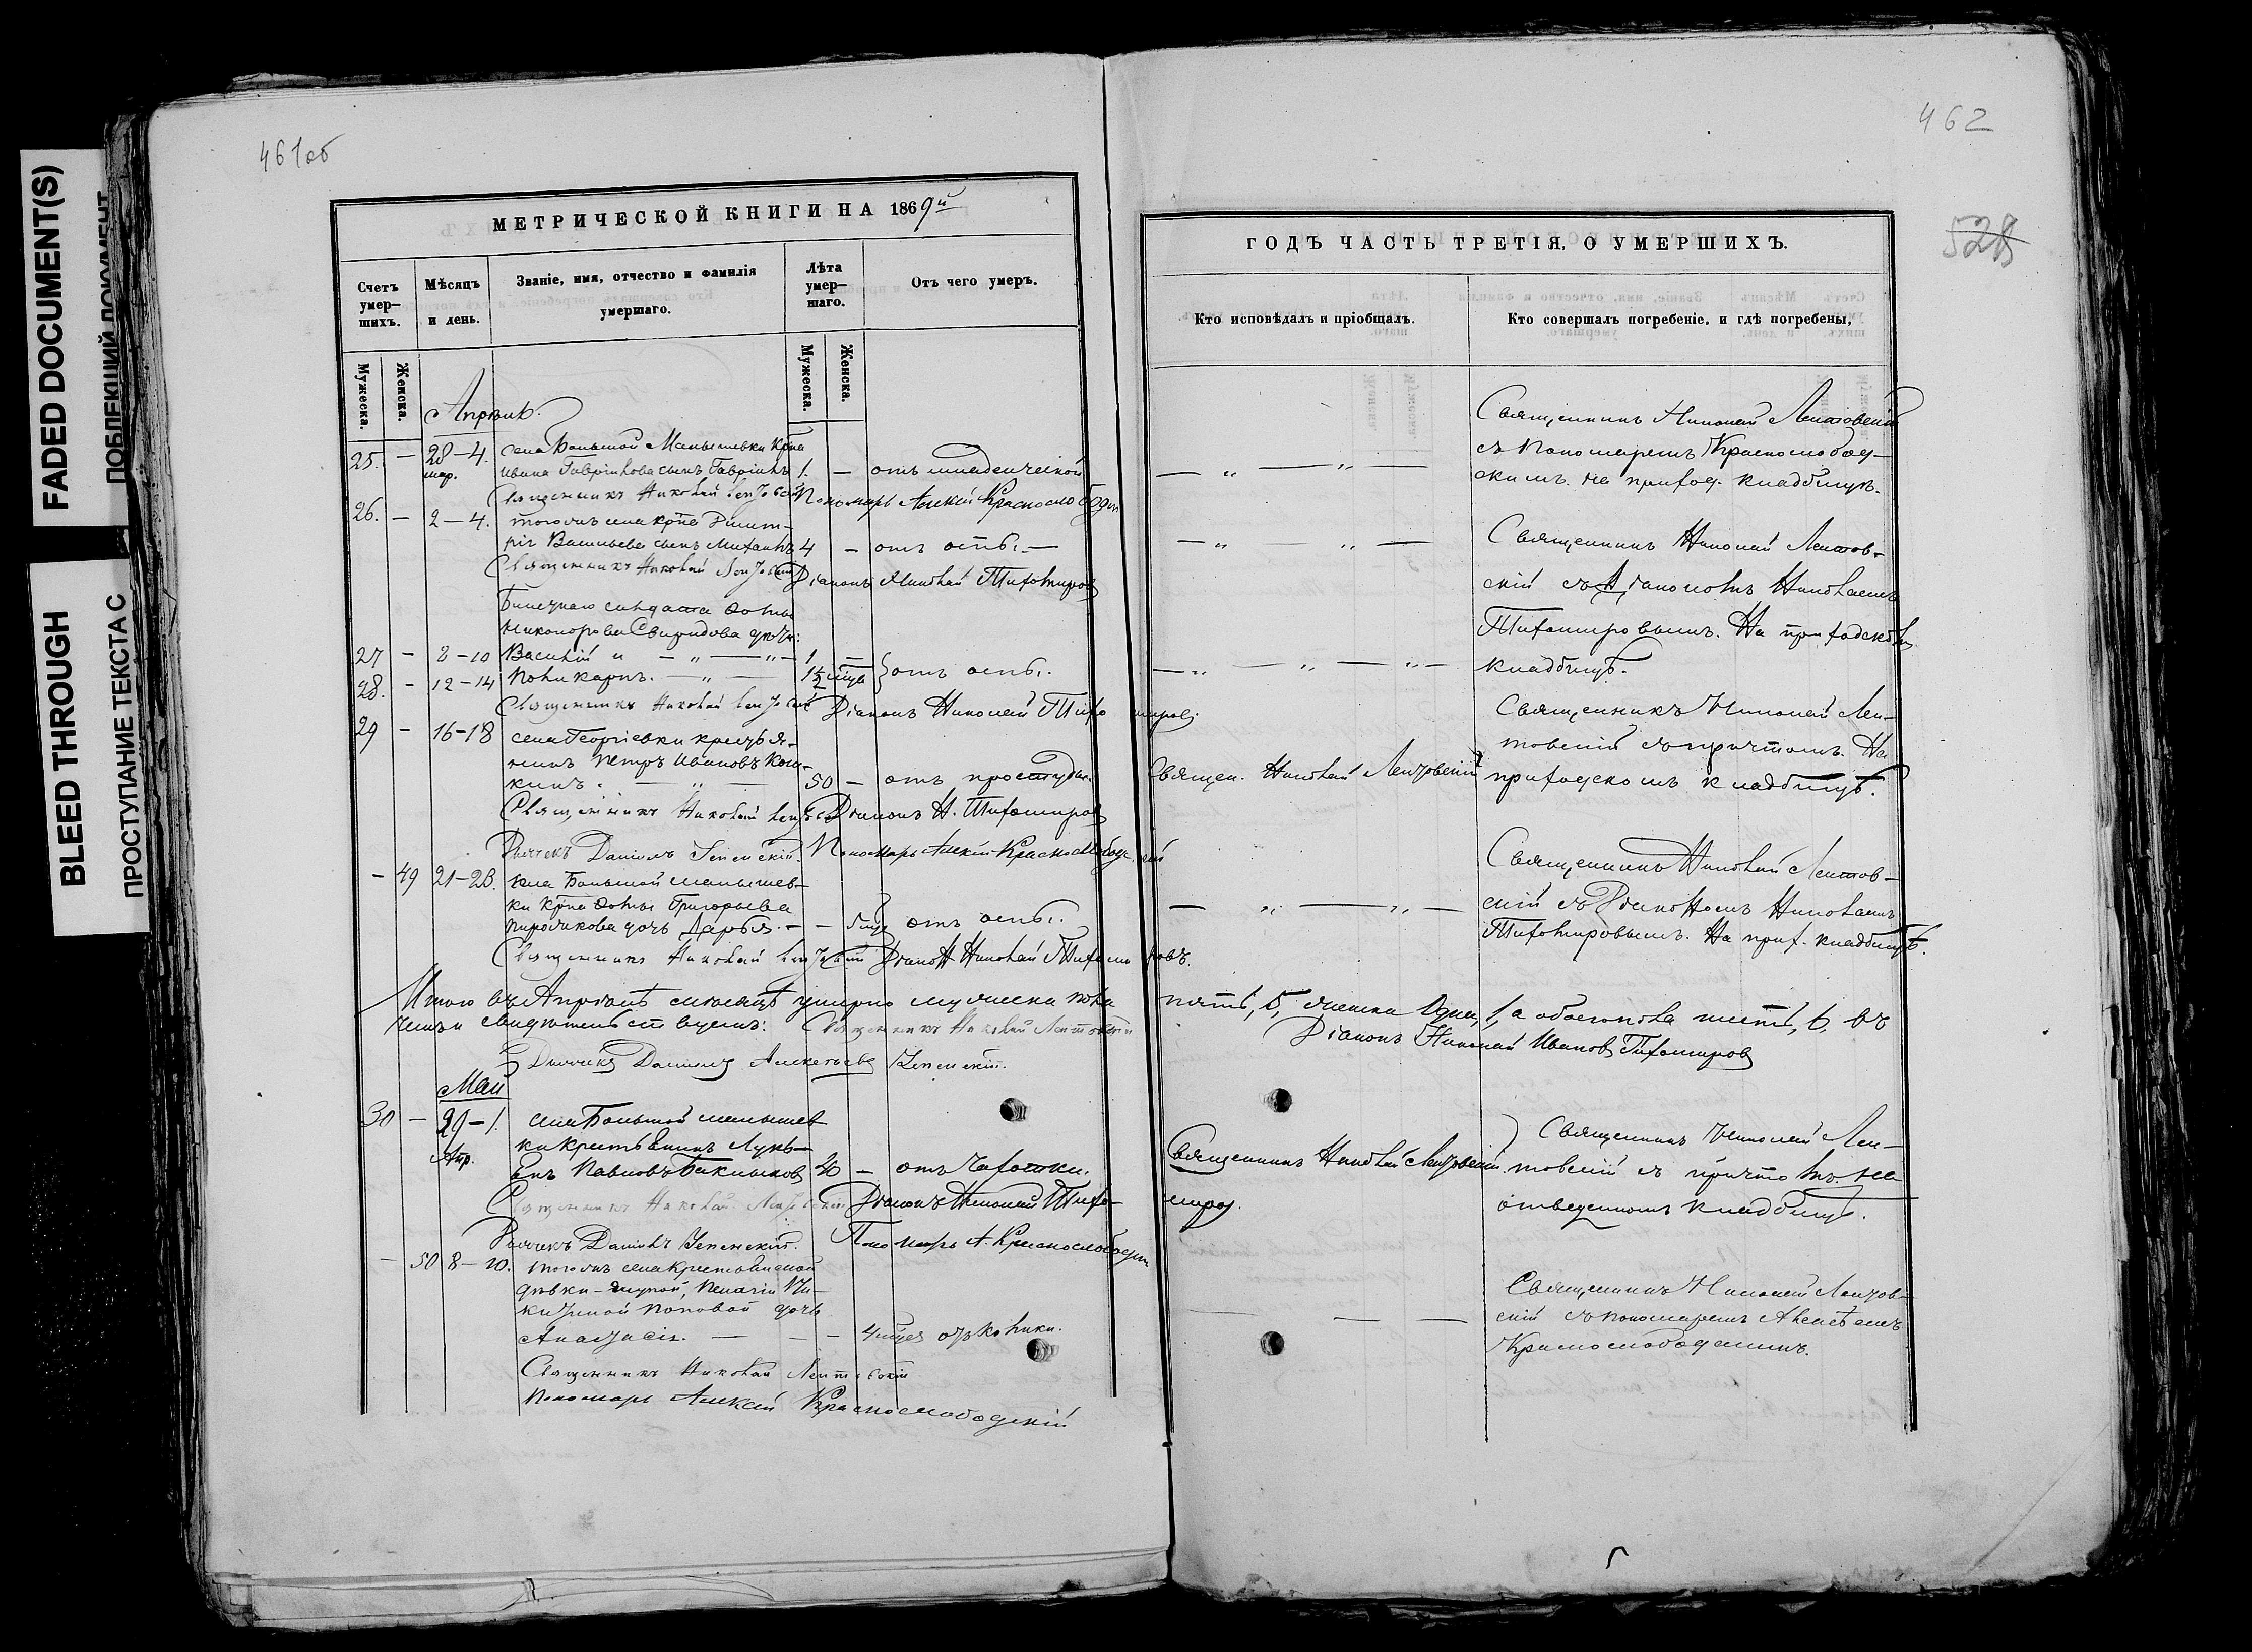 FADED DOCUMENT(S)
BLEED THROUGH
ПРОСТУПАНИЕ ТЕКСТА С
461об
МЕТРИЧЕСКОЙ КНИГИ НА 1869й
Счетъ умер-шихъ.
Мѣсяцъ и день.
Званіе, имя, отчество и фамилія умершаго.
Лѣта умер-шаго.
Отъ чего умеръ.
Мужеска.
Женска.
Мужеска.
Женска.
Апрѣль.
25. — 28–4. села Большой Малышевки Крна
мар. Ивана Гаврилова сынъ Гавріилъ 1. — отъ младенческой
Священникъ Николай Пономарь Алексій Краснослободск
26. — 2–4. тогожъ села крна Димит-
рія Васильева сынъ Михаилъ 4 — отъ оспы. —
Священникъ Николай Діаконъ Николай Тихомировъ
Билетнаго солдата Фотія
Никонорова Свиридова дѣти:
27 — 8–10 Василій и — „ — „ — 1 —
28. — 12–14 Поликарпъ. — „ — 1½ мѣся } отъ оспы.
Священникъ Николай Діаконъ Николай Тихомировъ
29 — 16–18 села Георгіевки крестья-
нинъ Петръ Ивановъ Кош-
кинъ. — „ — 50 — отъ простуды.
Священникъ Николай Діаконъ Н. Тихомировъ
Дьячекъ Даніилъ Пономарь Алексій Краснослободскій
— 49 21–23. села Большой Малышев-
ки крна Фотія Григорьева
Пирожкова дочь Дарья. — — 5 мѣся отъ оспы.
Священникъ Николай Діаконъ Николай Тихомировъ.
Итого въ Апрѣлѣ мѣсяцѣ умерло мужеска пола
чемъ и свидѣтельствуемъ: Священникъ Николай Лентовскій
Дьячекъ Даніилъ Алексѣевъ
Май
30 — 29–1. села Большой Малышев
Апр. ки Крестьянинъ Лукь-
янъ Павловъ Баклыковъ 40 — отъ чахотки.
Священникъ Николай Лентовскій Діаконъ Николай Тихо-
Дьячекъ Даніилъ Пономарь А. Краснослободскій
— 50 8–10. тогожъ села Крестьянской
дѣвки Пелагіи Ни-
китиной Поповой дочь
Анастасія. — — — 4 мѣся отъ колики.
Священникъ Николай Лентовскій
Пономарь Алексій Краснослободскій
462
528
ГОДЪ ЧАСТЬ ТРЕТІЯ, О УМЕРШИХЪ.
Кто исповѣдалъ и пріобщалъ.
Кто совершалъ погребеніе, и гдѣ погребены,
Священникъ Николай Лентовскій
съ Пономаремъ Краснослобод-
скимъ. На приход. кладбищѣ.
Священникъ Николай Лентов-
скій съ Діакономъ Николаемъ
Тихомировымъ. На приходскомъ
кладбищѣ.
Священникъ Николай Лен-
товскій съ причтомъ. На
Священ. Николай Лентовскій приходскомъ кладбищѣ.
Священникъ Николай Лентов-
скій съ Діакономъ Николаемъ
Тихомировымъ. На прих. кладбищѣ.
пять, 5, женска одна, 1, а обоего пола шесть, 6, въ
Діаконъ Николай Ивановъ Тихомировъ
Священникъ Николай Лен-
Священникъ Николай Лентовскій. товскій съ причтомъ. на
миров. отведенномъ кладбищѣ.
Священникъ Николай Лентов-
скій съ пономаремъ Алексѣемъ
Краснослободскимъ.